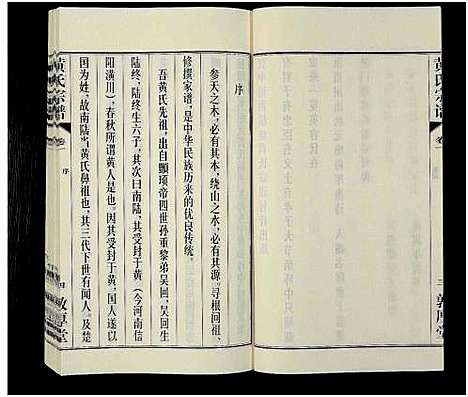 黄氏宗谱
卷
序
敦厚堂
序
参天之木，必有其本，绕山之水，必有其源。寻根回祖，
修撰家谱，是中华民族历来的优良传统。
吾黄氏先祖，出自颛顼帝四世孙重黎弟吴回，吴回生
陆终，陆终生六子，其次曰南陆，其受封于黄（今河南信
阳潢川），春秋所谓黄人是也。因其受封于黄，国人遂以
国为姓，故南陆当黄氏鼻祖也，其三代下世有闻人，及楚
黄氏宗谱
卷
敦厚堂